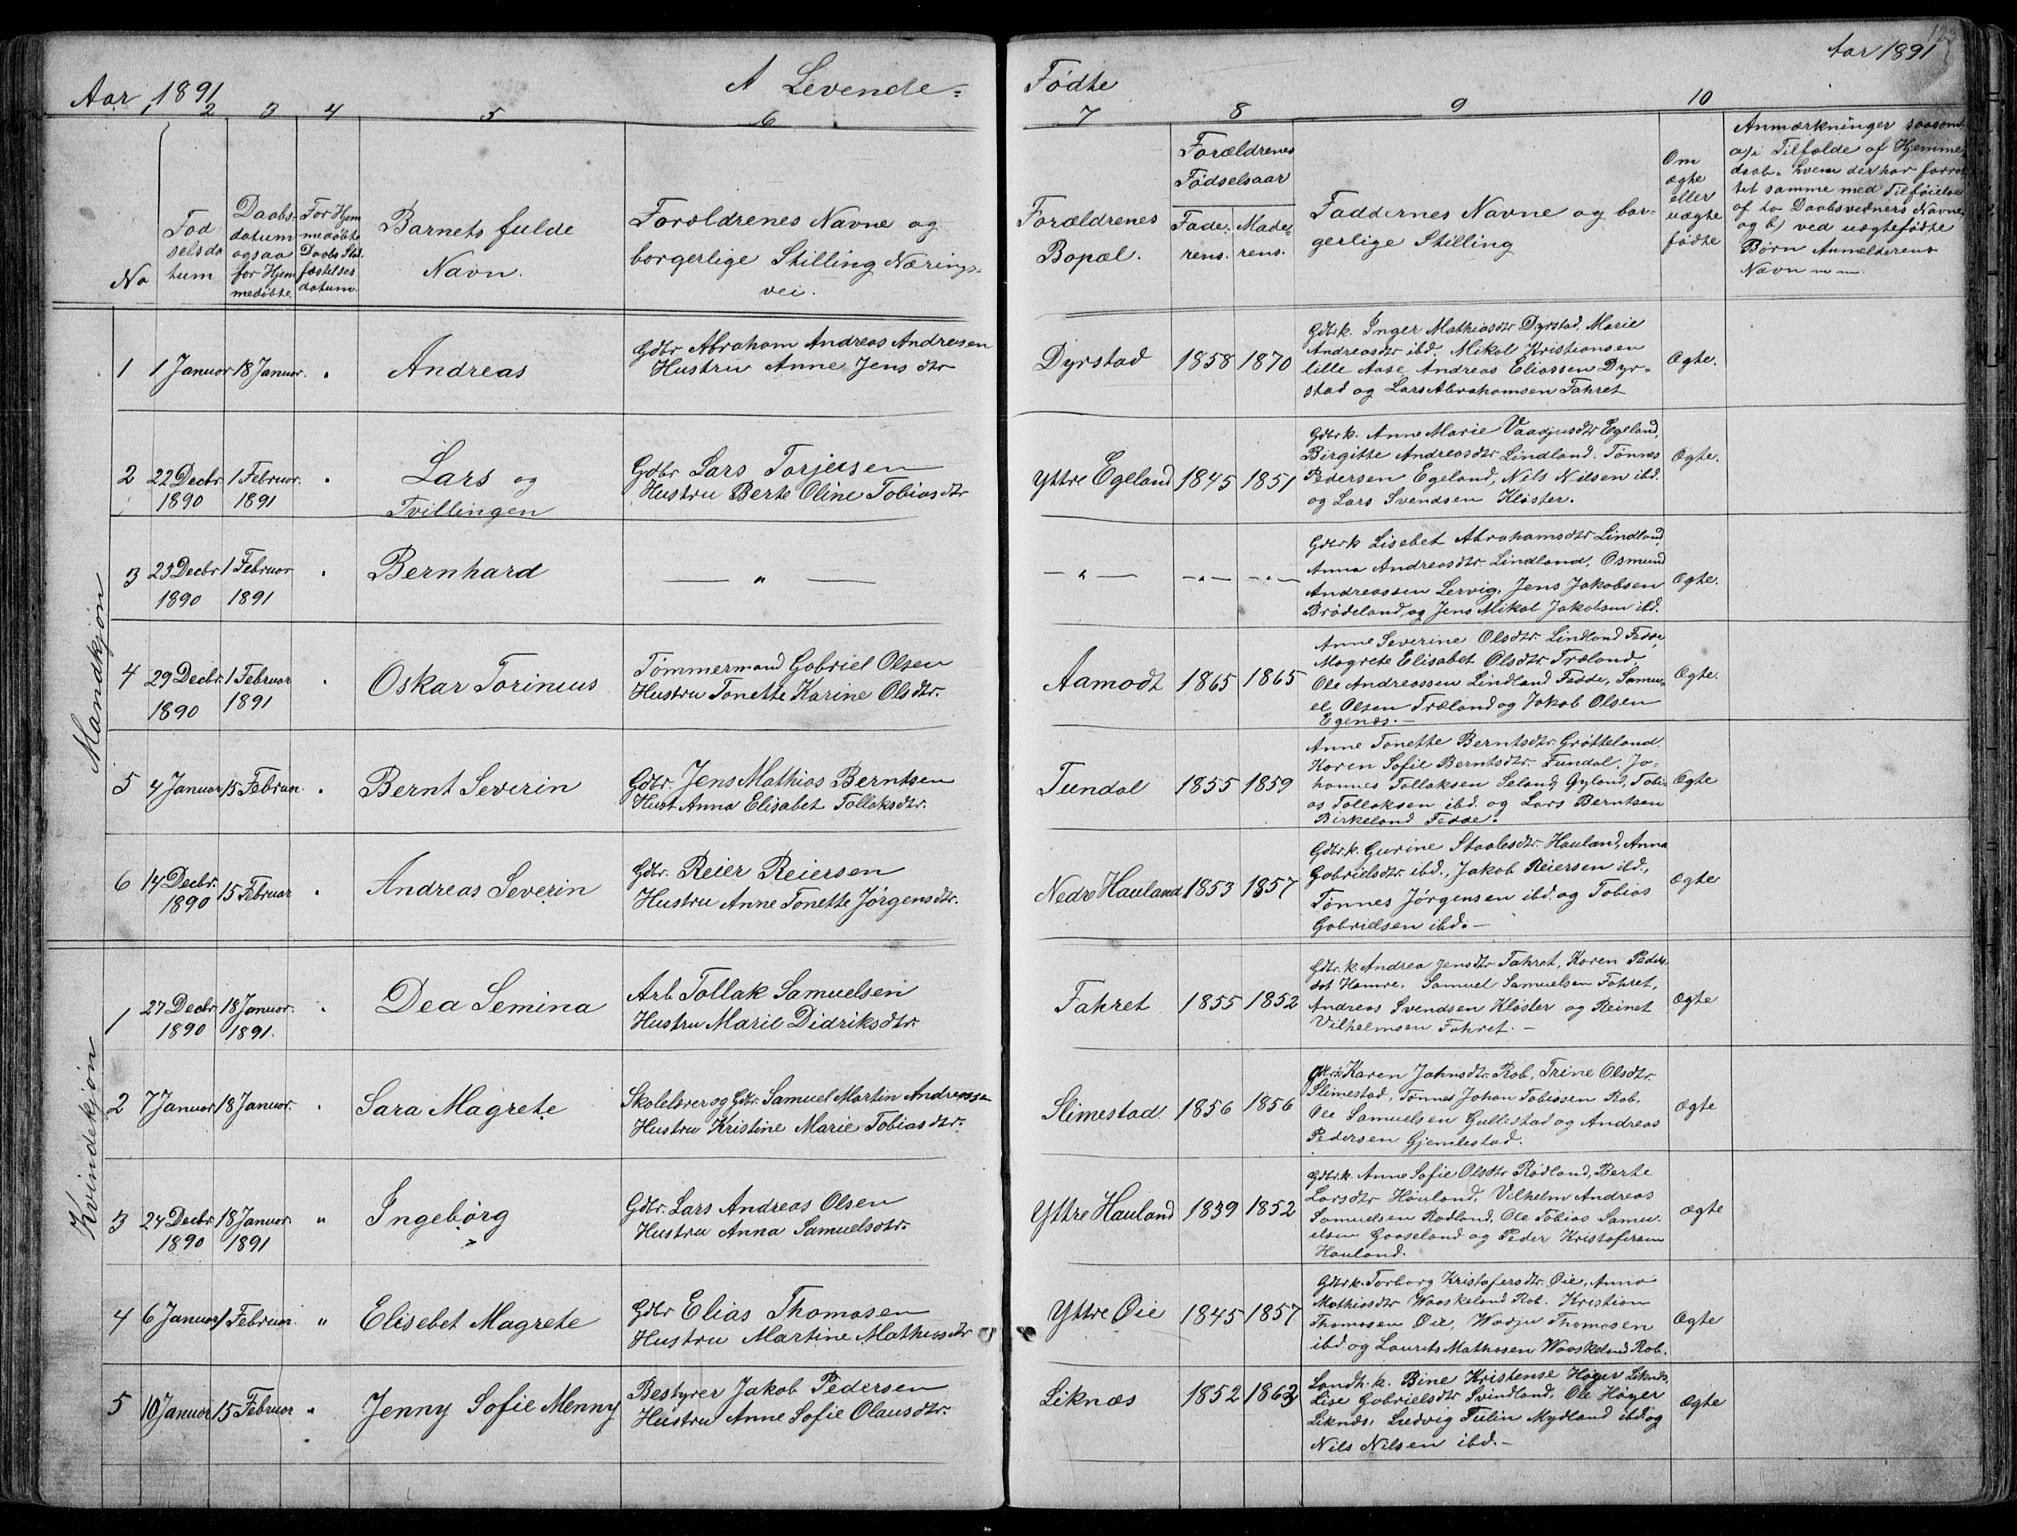 Aar 1891
A Levende-
Fødte
Aar 1891
1 2 3 4 5 6
7 8 9 10
No
Fød
selsda
tum
Daabs-
datum
ogsaa
for Hjem
medøbte
For Hjem
medøbte
Daabs Stad
fæstelses
datum.
Barnets fulde
Navn.
Forældrenes Navne og
borgerlige Stilling Nærings-
vei.
Forældrenes
Bopæl.
Forældrenes
Fødselsaar
Fade-
rens.
Mode-
rens.
Faddernes Navne og bor-
gerlige Stilling
Om
ægte
eller
uægte
fødte
Anmærkninger saasom
a) i Tilfælde af Hjemme-
daab, hvem der har forret
tet samme med Tilføielse
af to Daabsvidners Navne
og b) ved uægtefødte
Børn Anmelderens
Navn m m
Mandkjøn
1 1 Januar 18 Januar. "
Andreas
Gdbr Abraham Andreas Andresen
Hustru Anne Jensdtr
Dyrstad 1858 1870
Gdbrk. Inger Mathiasdtr Dyrstad, Marie
Andreasdtr ibd. Mikal Kristiansen
lille Aase, Andreas Eliassen Dyr-
stad og Lars Abrahamsen Fahret
Ægte.
2 22 Decbr. 1 Februar. "
1890 1891
Lars og
Tvillingen
Gdbr Lars Torjesen
Hustru Berte Oline Tobiasdtr
Yttre Egeland 1845 1851
Gdbrk. Anne Marie Vaadjusdtr Egeland,
Birgitte Andreasdtr Lindland. Tønnes
Pedersen Egeland, Nils Nilsen ibd.
og Lars Svendsen Kloster.
Ægte.
3 23 Decbr 1 Februar "
1890 1891
Bernhard
— " —
— " — — " — — " —
Gdbrk Lisebet Abrahamsdtr Lindland,
Anna Andreasdtr Lindland, Osmund
Andreassen Lervig, Jens Jakobsen
Brødeland og Jens Mikal Jakobsen ibd.
Ægte.
4 29 Decbr. 1 Februar "
1890 1891
Oskar Torinius
Tømmermand Gabriel Olsen
Hustru Tonette Karine Olsdtr.
Aamodt 1865 1865
Anne Severine Olsdtr Lindland Fedde,
Magrete Elisabet Olsdtr Træland.
Ole Andreassen Lindland Fedde, Samu-
el Olsen Træland og Jakob Olsen
Egenæs.—
Ægte.
5 4 Januar 15 Februar. "
Bernt Severin
Gdbr. Jens Mathias Berntsen
Hust Anna Elisabet Tollaksdtr.
Tundal 1855 1859
Anne Tonette Berntsdtr. Grøtteland.
Karen Sofie Berntsdtr. Tundal, Jo-
hannes Tollaksen Seland, Gyland, Tobi-
as Tollaksen ibd. og Lars Berntsen
Birkeland Fedde.
Ægte
6 14 Decbr. 15 Februar "
1890
Andreas Severin
Gdbr. Reier Reiersen
Hustru Anne Tonette Jørgensdtr.
Nedre Hauland 1853 1857
Gdbrk. Gurine Staalesdtr Hauland, Anna
Gabrielsdtr ibd., Jakob Reiersen ibd.,
Tønnes Jørgensen ibd. og Tobias
Gabrielsen ibd.—
Ægte
Kvindekjøn
1 27 Decbr. 18 Januar. "
1890 1891.
Dea Semina
Arb Tollak Samuelsen
Hustru Marie Didriksdtr.
Fahret 1855 1852
Gdbr.k Andrea Jensdtr Fahret, Karen Peders
dat Hamre. Samuel Samuelsen Fahret,
Andreas Svendsen Kloster og Reinet
Vilhelmsen Fahret.—
Ægte
2 7 Januar 18 Januar. "
Sara Magrete
Skolelærer og Gdbr. Samuel Martin Andreassen
Hustru Kristine Marie Tobiasdtr.
Slimestad 1856 1856
Gdbrk. Karen Jahnsdtr. Rob, Trine Olsdtr.
Slimestad, Tønnes Johan Tobiassen Rob.
Ole Samuelsen Gullestad og Andreas
Pedersen Gjemlestad.
Ægte
3 24 Decbr 18 Januar. "
1890 1891
Ingebørg
Gdbr. Lars Andreas Olsen
Hustru Anna Samuelsdtr.
Yttre Hauland 1839 1852
Gdbrk. Anne Sofie Olsdtr Rødland, Berte
Larsdtr Hauland. Vilhelm Andreas
Samuelsen Rødland, Ole Tobias Samu-
elsen Gooseland og Peder Kristofersen
Hauland.
Ægte
4 6 Januar 1 Februar. "
Elisebet Magrete
Gdbr Elias Thomasen
Hustru Martine Mathiasdtr
Yttre Øie 1845 1857
Gdbrk. Torborg Kristofersdtr. Øie, Anna
Mathiasdtr Waaskeland Rob. Kristian
Thomasen Øie, Wadju Thomasen
ibd og Laurits Mathasen Waaskeland Rob.
Ægte
5 10 Januar 15 Februar "
Jenny Sofie Menny
Bestyrer Jakob Pedersen
Hustru Anne Sofie Olausdtr.
Liknæs 1852 1862
Landh.k. Bine Kristense Høyer Liknds,
Lise Gabrielsdtr Svindland, Ole Høyer
Liknds, Ludvig Tulin Mydland ibd. og
Nils Nilsen ibd.—
Ægte